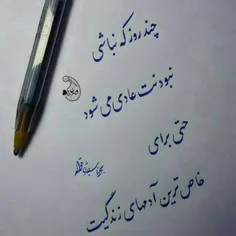 چند روز که نباشی
نبودنت عادی می شود
حتی برای
خاص ترین آدمهای زندگیت